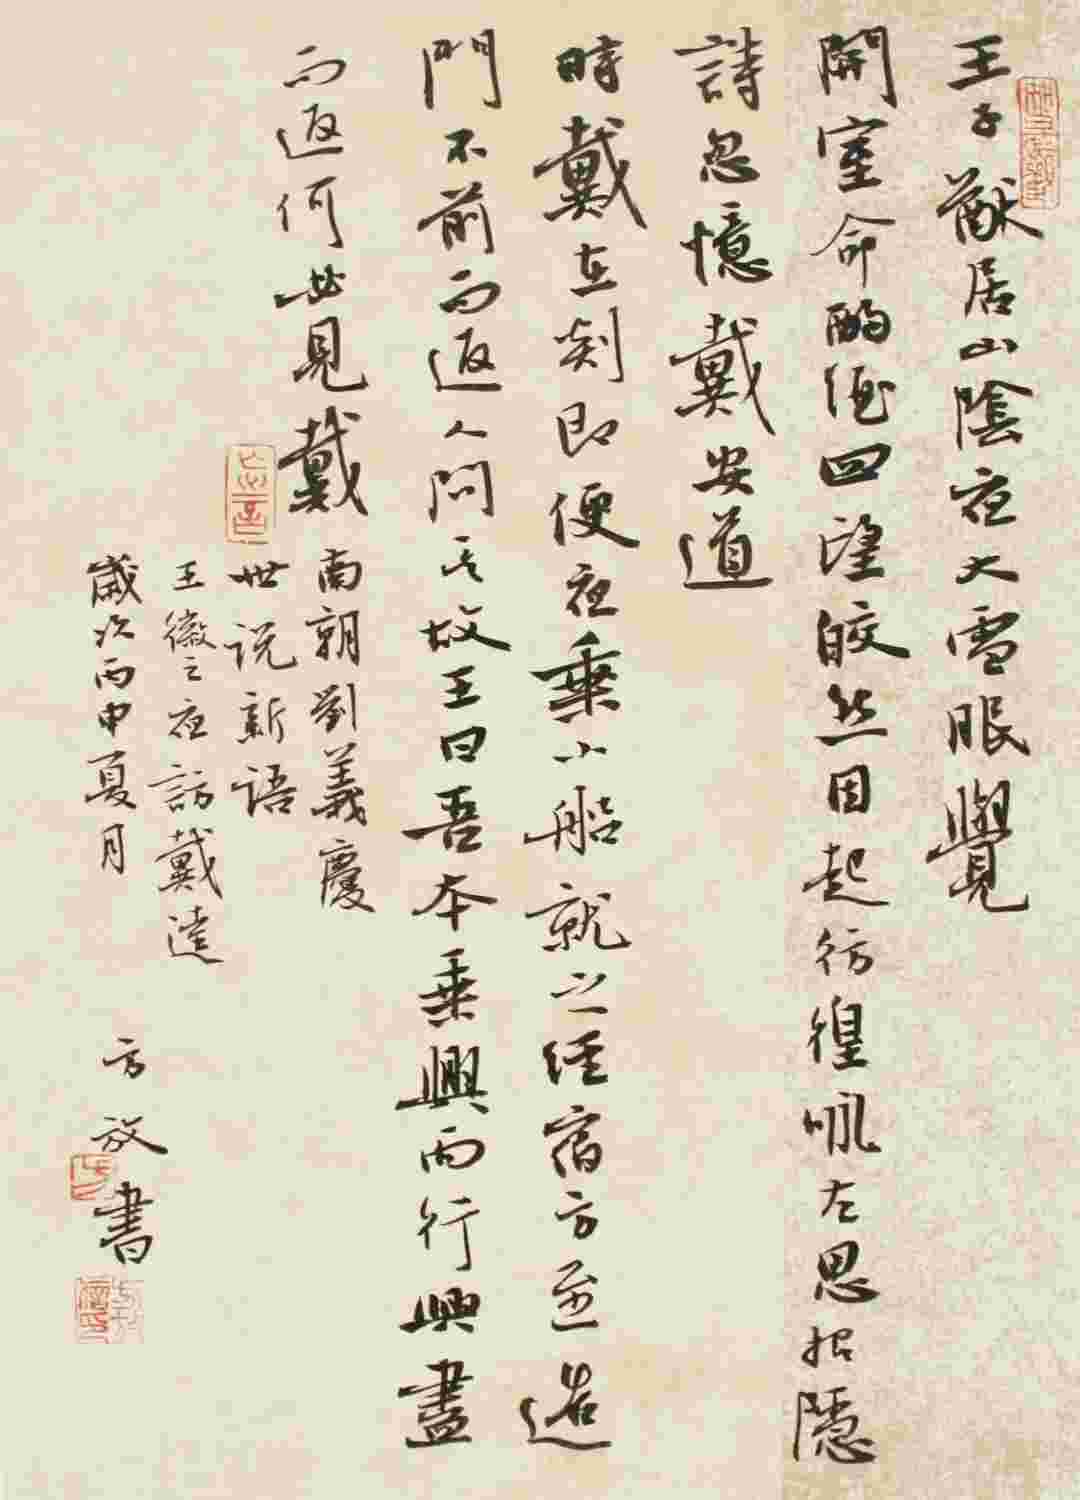 王子猷居山陰夜大雪眠覺
開室命酌酒四望皎然因起彷徨咏左思招隱
詩忽憶戴安道
時戴在剡即便夜乗小船就之經宿方至造
門不前而返人問其故王曰吾本乗興而行興盡
而返何必見戴
南朝劉義慶
世说新语
王徽之夜訪戴逵
歲次丙申夏月
方放書